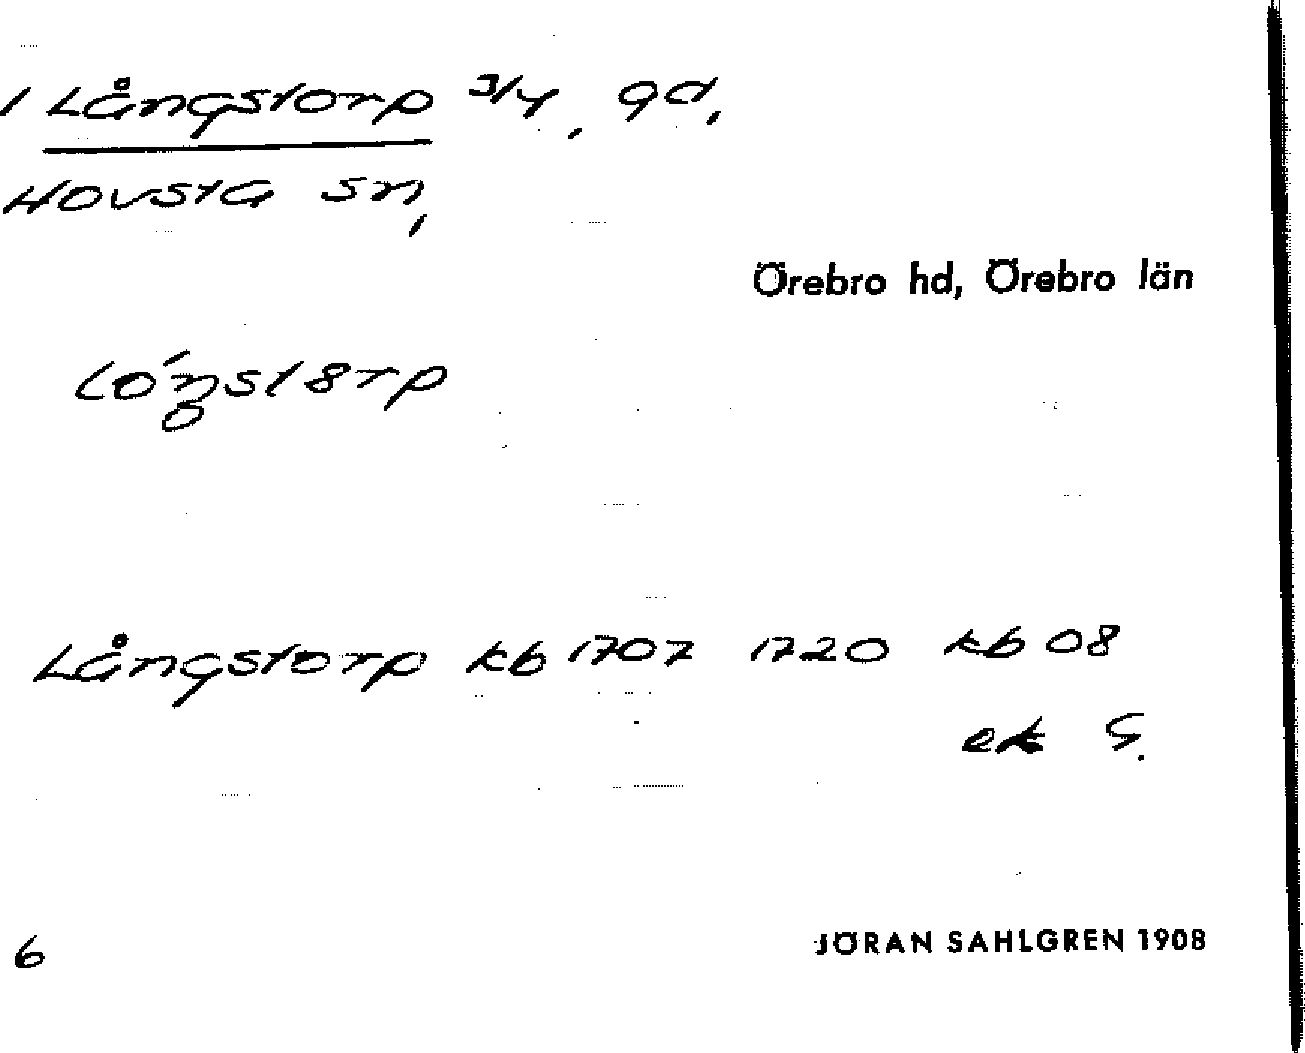 1 Långstorp 3/4, gd,
Hovsta sn,
Örebro hd, Örebro län
Långstorp kb 1707 1720 kb 08
ek S.
6
JÖRAN SAHLGREN 1908